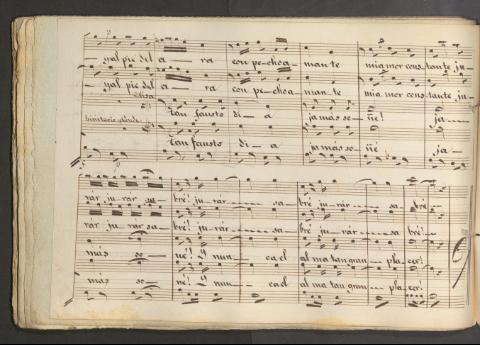 yal pie del a — ra con pe-cho a — man-te mi a-mor cons-tante ju
yal pie del a — ra con pe-cho a — man-te mi a-mor cons-tante ju
tan fausto di — a ja más so — ñé! ja
tan fausto di — a ja más so — ñé ja
rár ju-rar sa — bré! ju-rár — sa — bré ju-rár — sa bré
rár ju-rar sa — bré! ju-rár — sa — bré ju-rár — sa bré!
más so — ñé! Y nun — ca el al ma tan gran — pla cer!
más so — ñé! Y nun — ca el al ma tan gran — pla cer!